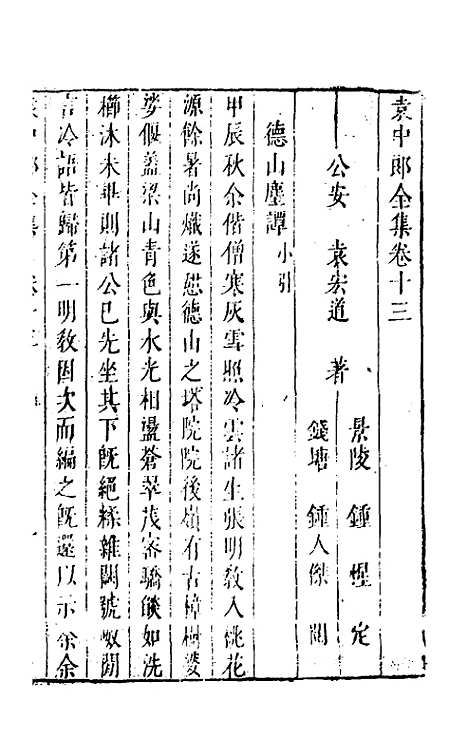 袁中郎全集卷十三
公安 袁宏道 著
景陵 鍾惺 定
錢塘 鍾人傑 閱
德山麈譚小引
甲辰秋余偕僧寒灰雪照冷雲諸生張明教入桃花
源餘暑尚熾遂憩德山之塔院院後嶺有古樟樹婆
娑偃蓋梁山青色與水光相盪蒼翠茂密驕燄如洗
櫛沐未畢則諸公已先坐其下既絕糅雜闕號呶閒
言冷語皆歸第一明教因次而編之既還以示余余